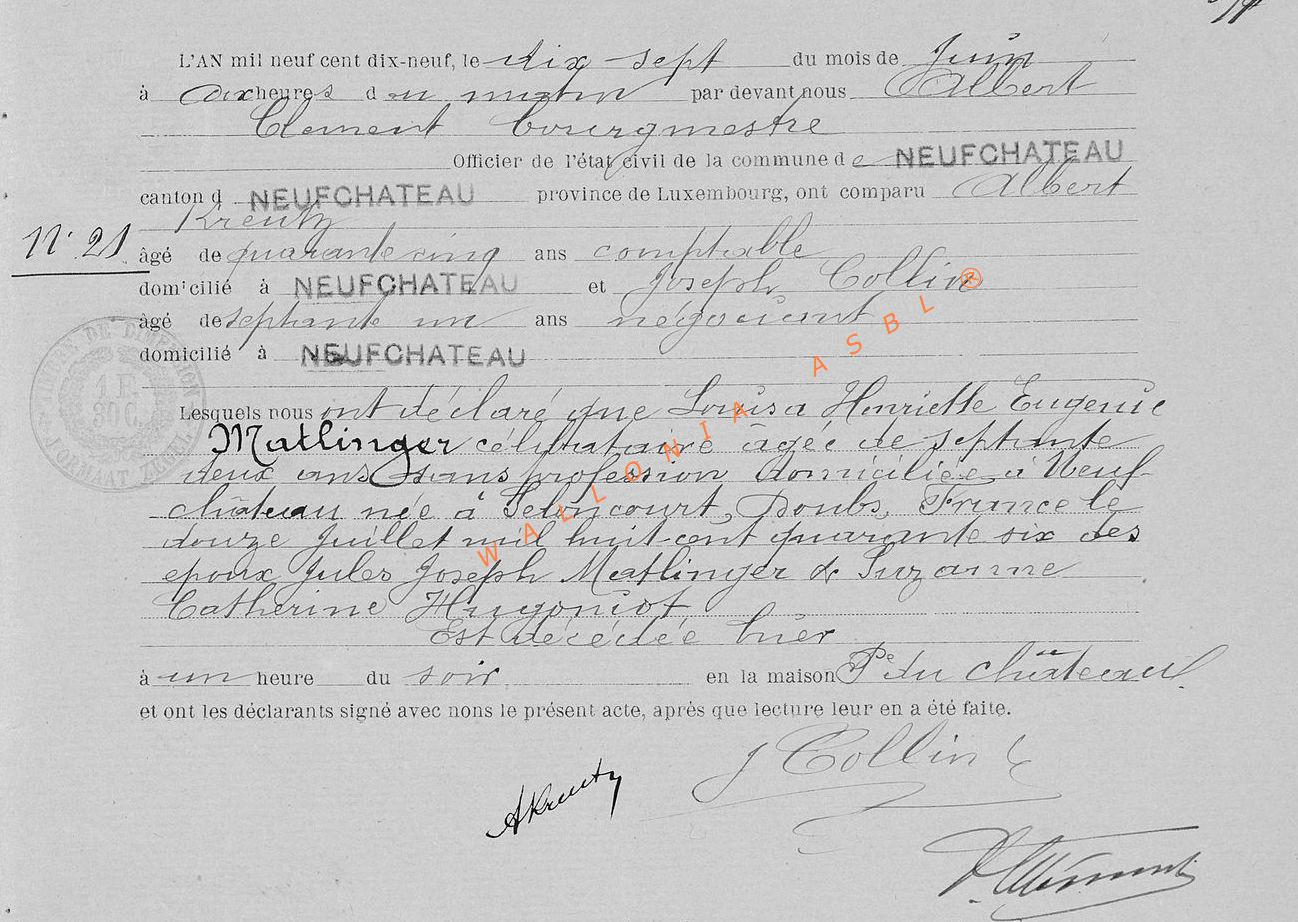 L'AN mil neuf cent dix-neuf, le dix-sept du mois de Juin
à dix heures du matin par devant nous Albert
Clement bourgmestre
Officier de l'état civil de la commune de NEUFCHATEAU
canton d NEUFCHATEAU province de Luxembourg, ont comparu Albert
Kreutz
N° 21
âgé de quarante cinq ans comptable
domicilié à NEUFCHATEAU et Joseph Collin
âgé de septante un ans négociant
domicilié à NEUFCHATEAU
1 F. 30 C.
Lesquels nous ont déclaré que Louisa Henriette Eugenie
Matlinger célibataire âgée de septante
deux ans sans profession domiciliée à Neuf
château née à Seloncourt, Doubs, France le
douze Juillet mil huit-cent quarante six des
epoux Jules Joseph Matlinger & Suzanne
Catherine Hugoniot
Est décédée hier
à un heure du soir en la maison Pce du château
et ont les déclarants signé avec nons le présent acte, après que lecture leur en a été faite.
J Collin
AKreutz
WALLONIA ASBL ®